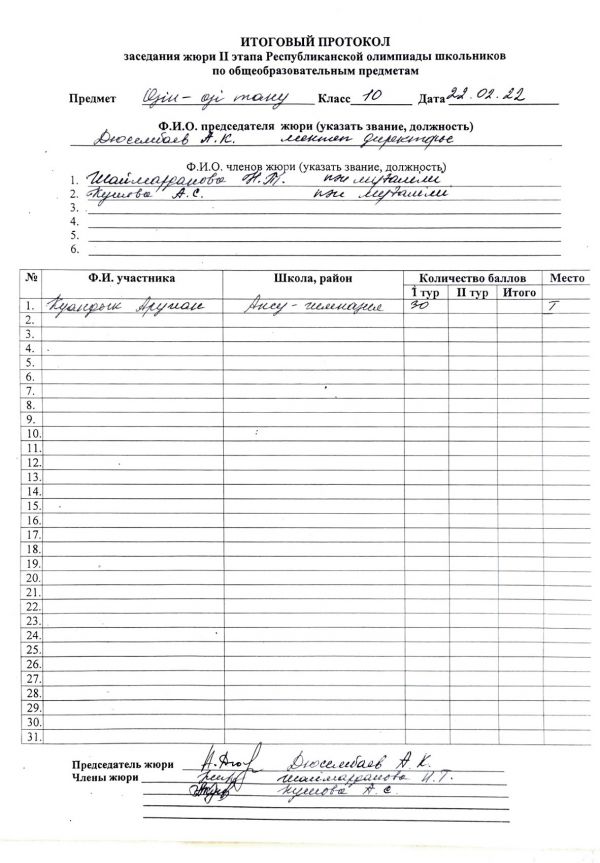 ИТОГОВЫЙ ПРОТОКОЛ
заседания жюри II этапа Республиканской олимпиады школьников
по общеобразовательным предметам
Предмет Өзін-өзі тану Класс 10 Дата 22.02.22
Ф.И.О. председателя жюри (указать звание, должность)
Дюсембаев А.К. мектеп директоры
Ф.И.О. членов жюри (указать звание, должность)
1. Шаймарданова Н.Т. пән мұғалімі
2. А.С. пән мұғалімі
3.
4.
5.
6.
№ Ф.И. участника Школа, район Количество баллов Место
I тур II тур Итого
1. Қуандық Аружан Ақсу-гимназия 30 I
2.
3.
4.
5.
6.
7.
8.
9.
10.
11.
12.
13.
14.
15.
16.
17.
18.
19.
20.
21.
22.
23.
24.
25.
26.
27.
28.
29.
30.
31.
Председатель жюри Дюсембаев А.К.
Члены жюри Шаймарданова Н.Т.
А.С.